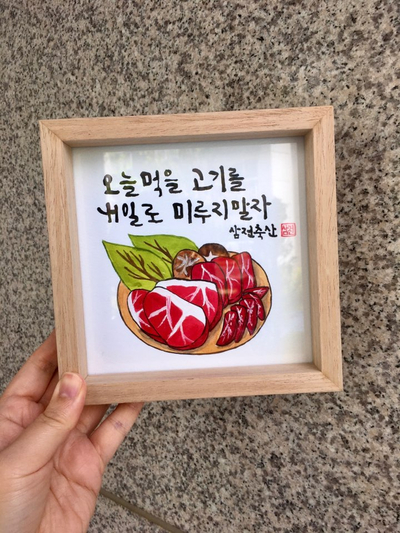 오늘먹을 고기를
내일로 미루지말자
삼전축산